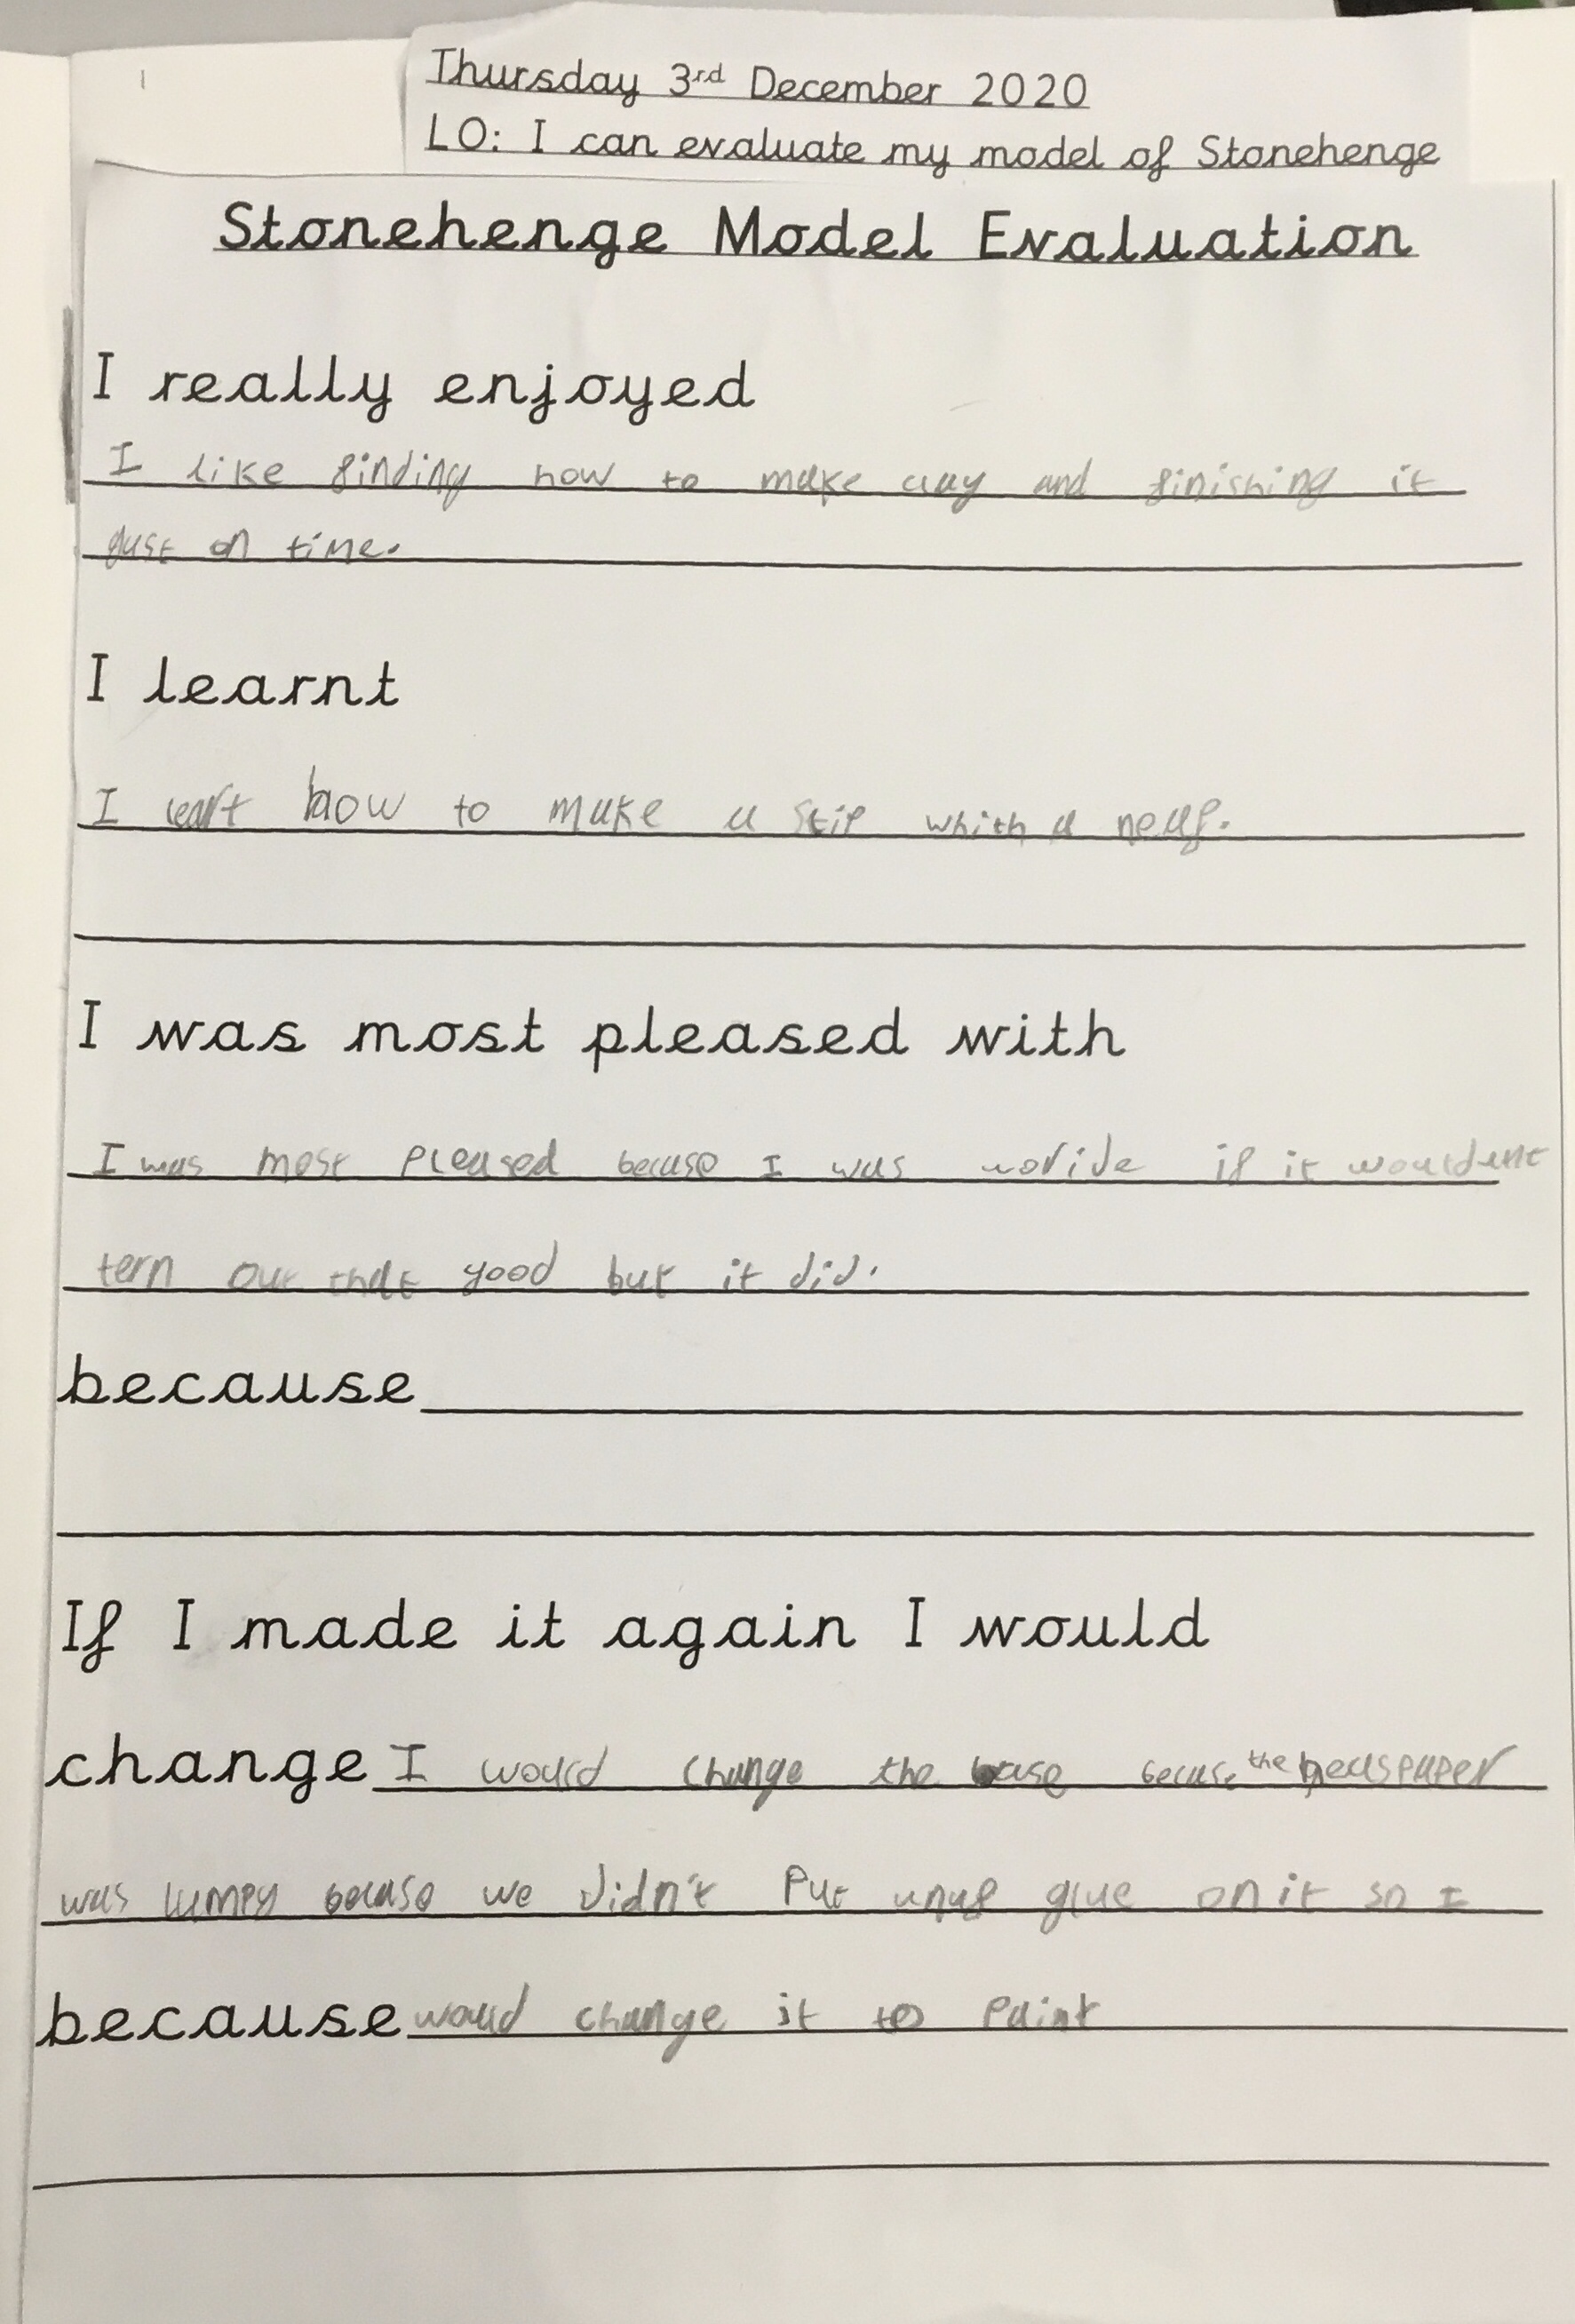 Thursday 3rd December 2020
LO: I can evaluate my model of Stonehenge
Stonehenge Model Evaluation
I really enjoyed
I like finding how to make clay and finishing it
just on time.
I learnt
I leart how to make a stip whith a neuf.
I was most pleased with
I was most pleased becuse I was woride if it wouldent
tern out that good but it did.
because
If I made it again I would
change I would change the base becuse the neuspaper
was lumpy becuse we didn't put unuf glue on it so I
because would change it to paint